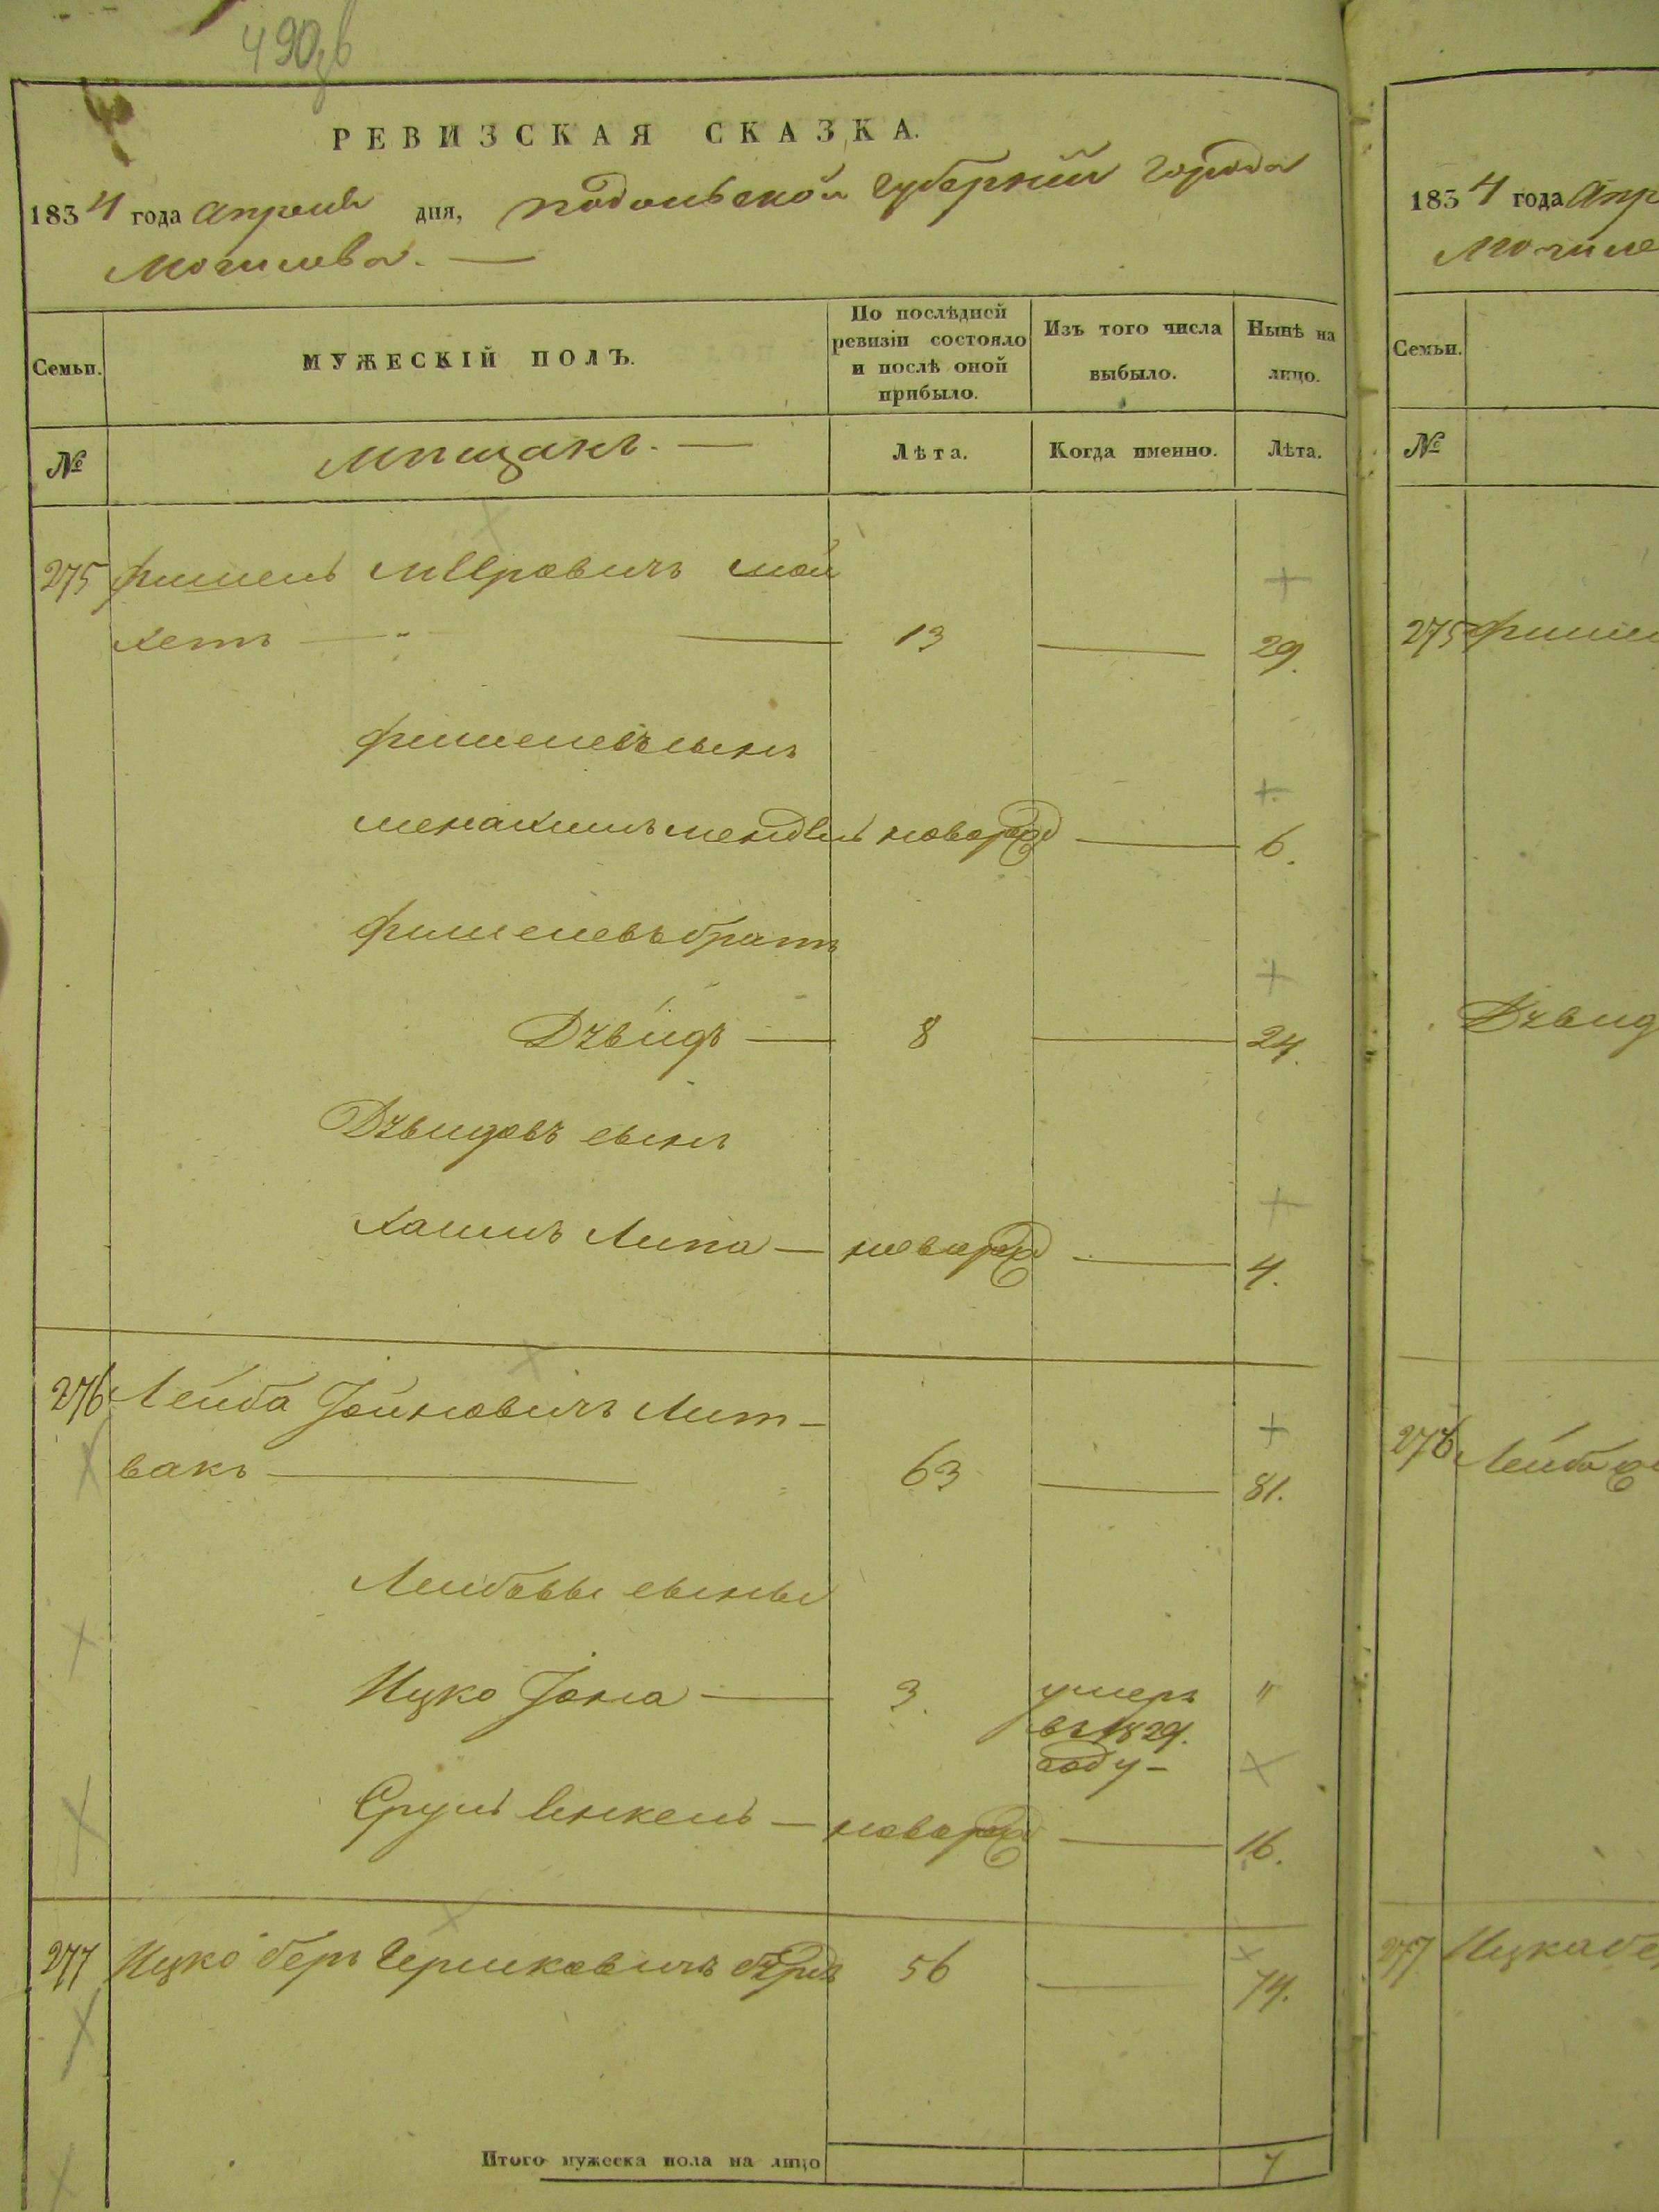 490 об
РЕВИЗСКАЯ СКАЗКА.
1834 года апреля дня, подольской губернии города
Могилева. —
Семьи.
МУЖЕСКІЙ ПОЛЪ.
По послѣдней ревизіи состояло и послѣ оной прибыло.
Изъ того числа выбыло.
Нынѣ на лицо.
№
Мѣщанъ. —
Лѣта.
Когда именно.
Лѣта.
275 Фишель Меировичъ
13 — 29.
Фишелевъ сынъ
Менахимъ Мендель новорож — 6.
Фишелевъ братъ
Дувидъ — 8 — 24.
Дувидовъ сынъ
Хаимъ Липа — новорож — 4.
276 Лейба Іойновичъ Лит-
вакъ — 63 — 81.
Лейбовы сыны
Ицко Іона — 3. умеръ "
въ 1829.
году —
Сруль Янкель — новорож — 16.
277 Ицко беръ Гершковичъ 56 — 74.
Итого мужеска пола на лицо 7
1834 года Апр
Могиле
Семьи.
№
275 Фишел
Дувид
276 Лейба
277 Ицка бе